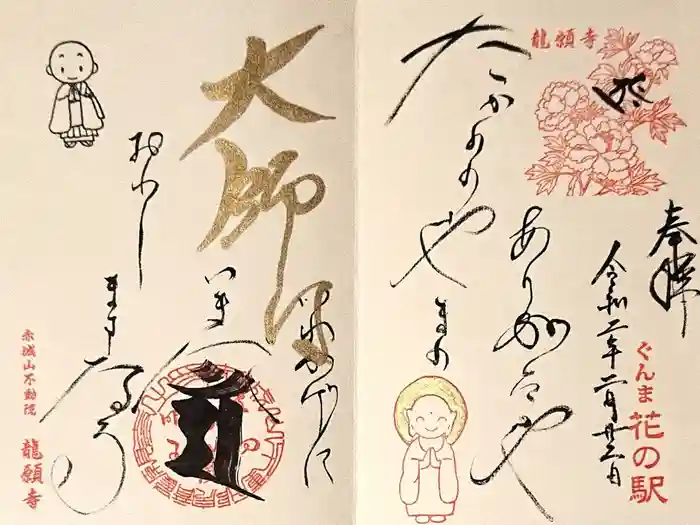 龍願寺
奉拝
令和二年二月廿三日
ぐんま花の駅
ありがたや
たかのの
やまの
いわかげに
大師は
いまだ
おわし
ますなる
赤城山不動院
龍願寺